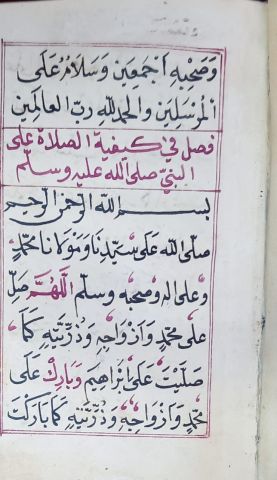 وَصَحْبِهِ أَجْمَعِينَ وَسَلَامٌ عَلَى
الْمُرْسَلِينَ وَالْحَمْدُ لِلَّهِ رَبِّ الْعَالَمِينَ
فصل في كيفية الصلاة على
النبيّ صلى الله عليه وسلّم
بسم الله الرحمن الرحيم
صلى الله على سيّدنا ومولانا محمّدٍ
وعلى اله وصحبه وسلم اللَّهُمَّ صَلِّ
على محمّدٍ وَأَزْوَاجِهِ وَذُرِّيَّتِهِ كَمَا
صَلَّيْتَ عَلَى إِبْرَاهِيمَ وَبَارِكْ عَلَى
محمّدٍ وَأَزْوَاجِهِ وَذُرِّيَّتِهِ كَمَا بَارَكْتَ